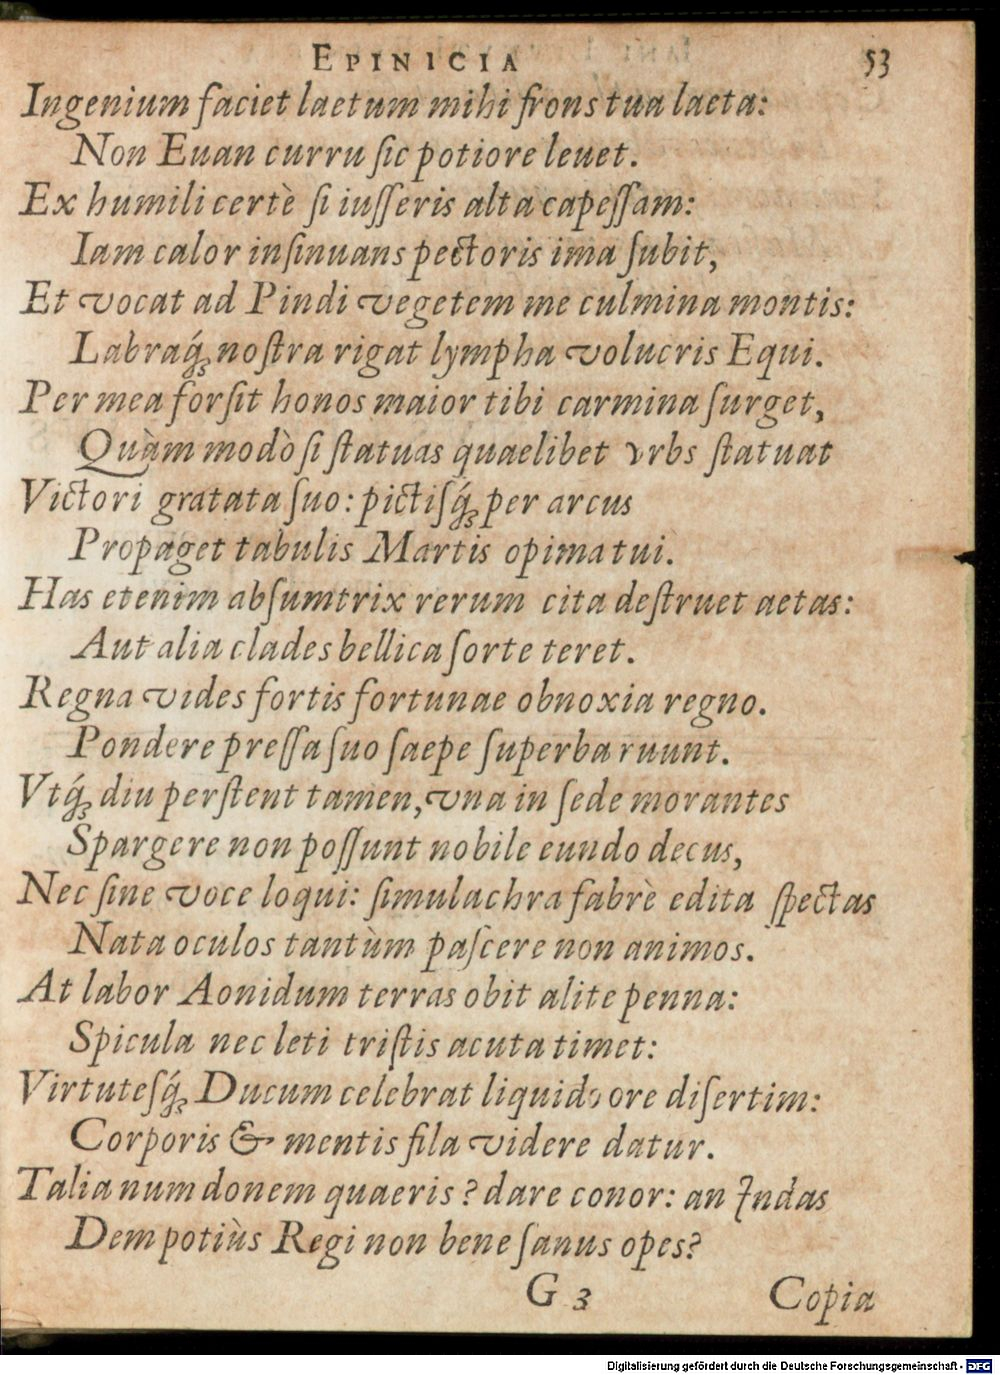 EPINICIA 53
Ingenium faciet laetum mihi frons tua laeta:
Non Euan curru sic potiore leuet.
Ex humili certè si iusseris alta capessam:
Iam calor insinuans pectoris ima subit,
Et vocat ad Pindi vegetem me culmina montis:
Labraq́ꝫ nostra rigat lympha volucris Equi.
Per mea forsit honos maior tibi carmina surget,
Quàm modò si statuas quaelibet vrbs statuat
Victori gratata suo: pictisq́ꝫ per arcus
Propaget tabulis Martis opima tui.
Has etenim absumtrix rerum cita destruet aetas:
Aut alia clades bellica sorte teret.
Regna vides fortis fortunae obnoxia regno.
Pondere pressa suo saepe superba ruunt.
Vtq́ꝫ diu perstent tamen, vna in sede morantes
Spargere non possunt nobile eundo decus,
Nec sine voce loqui: simulachra fabrè edita spectas
Nata oculos tantùm pascere non animos.
At labor Aonidum terras obit alite penna:
Spicula nec leti tristis acuta timet:
Virtutesq́ꝫ Ducum celebrat liquido ore disertim:
Corporis & mentis fila videre datur.
Talia num donem quaeris? dare conor: an Indas
Dem potiùs Regi non bene sanus opes?
G 3 Copia
Digitalisierung gefördert durch die Deutsche Forschungsgemeinschaft - DFG